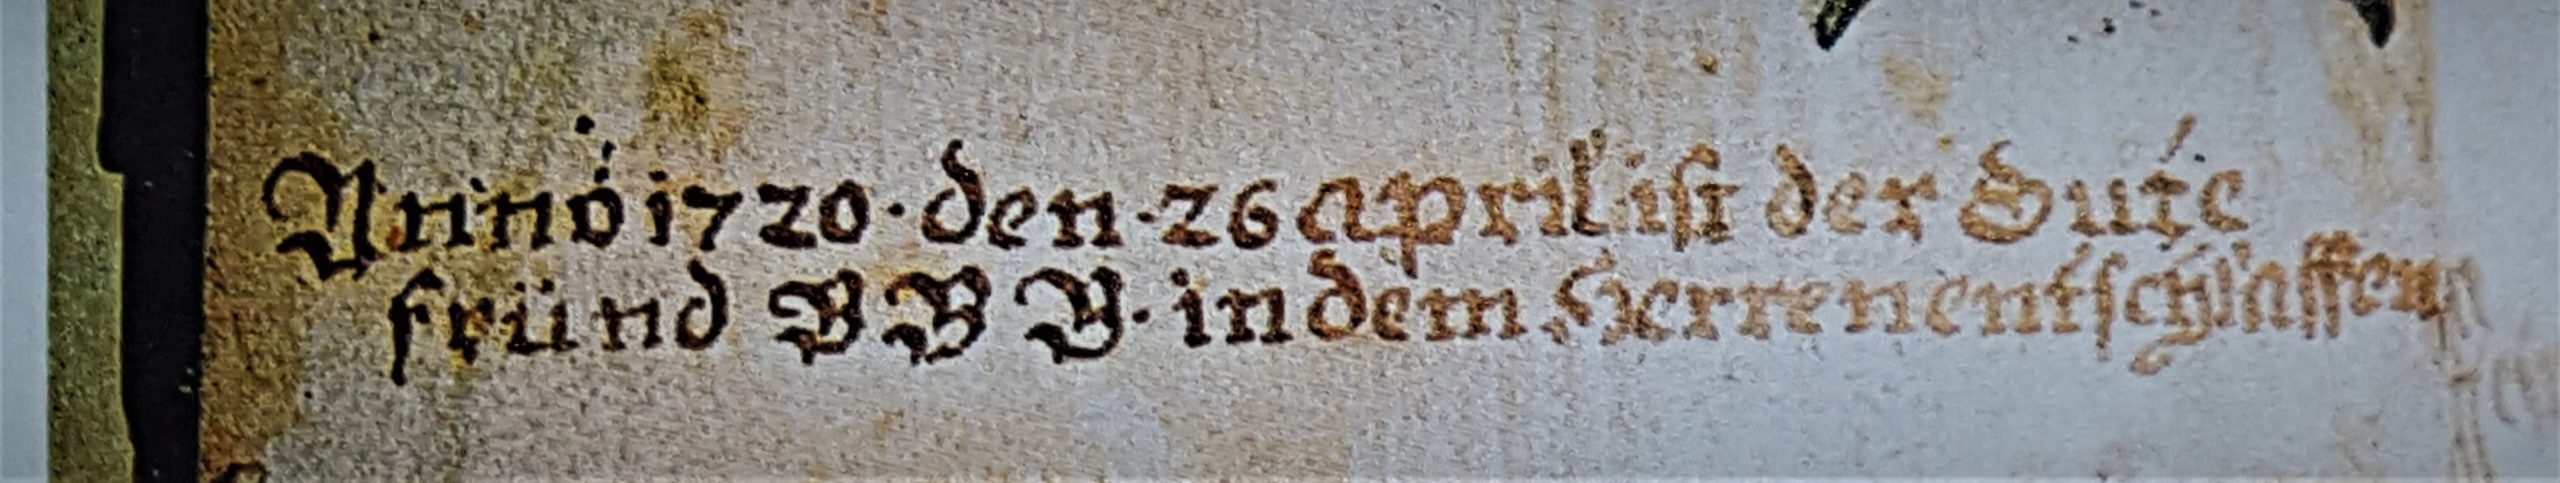 Anno 1720 · den · 26 april ist der Gute
fründ B B B · in dem Herren entschlaffen